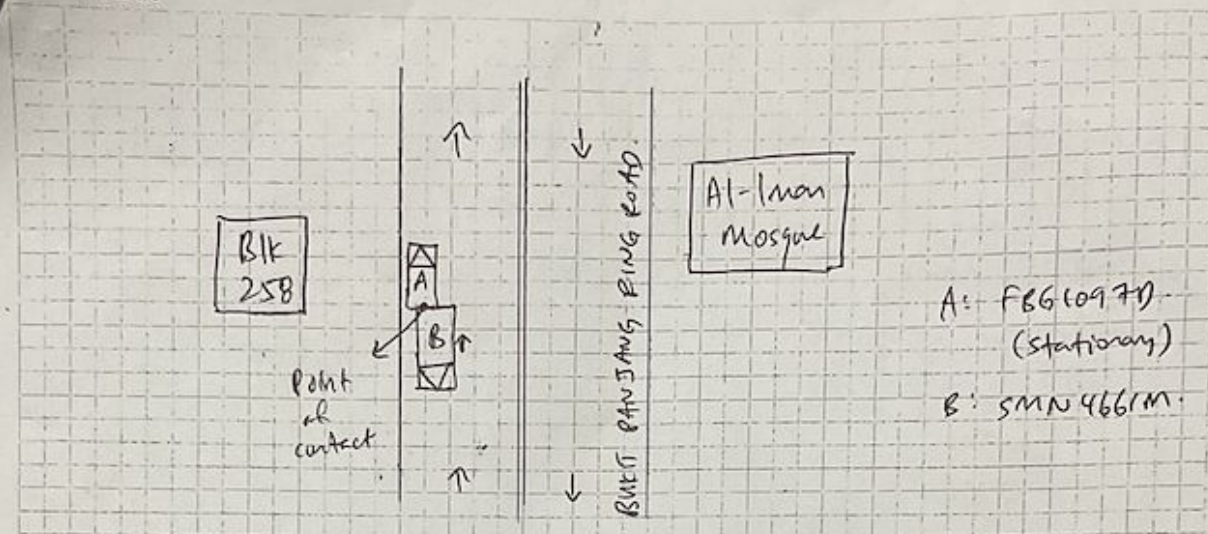 Blk
258
A
B
Point
of
contact
BUKIT PANJANG RING ROAD
Al-Iman
Mosque
A: FBG1097D
(stationary)
B: SMN4661M